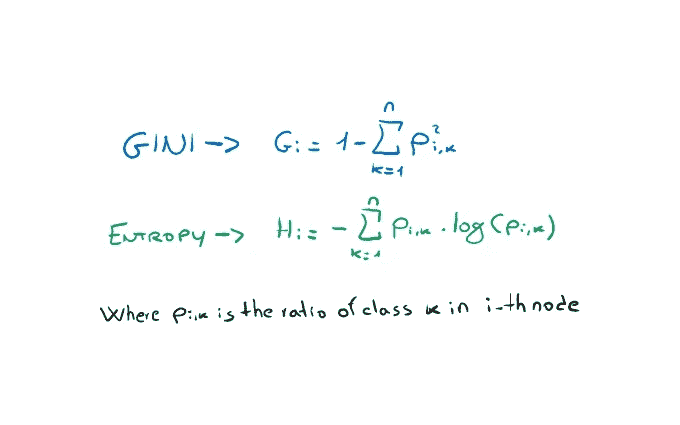 GINI -> Gi = 1 - n∑k=1 p²i,k
ENTROPY -> Hi = - n∑k=1 pi,k . log(pi,k)
Where pi,k is the ratio of class k in i-th node